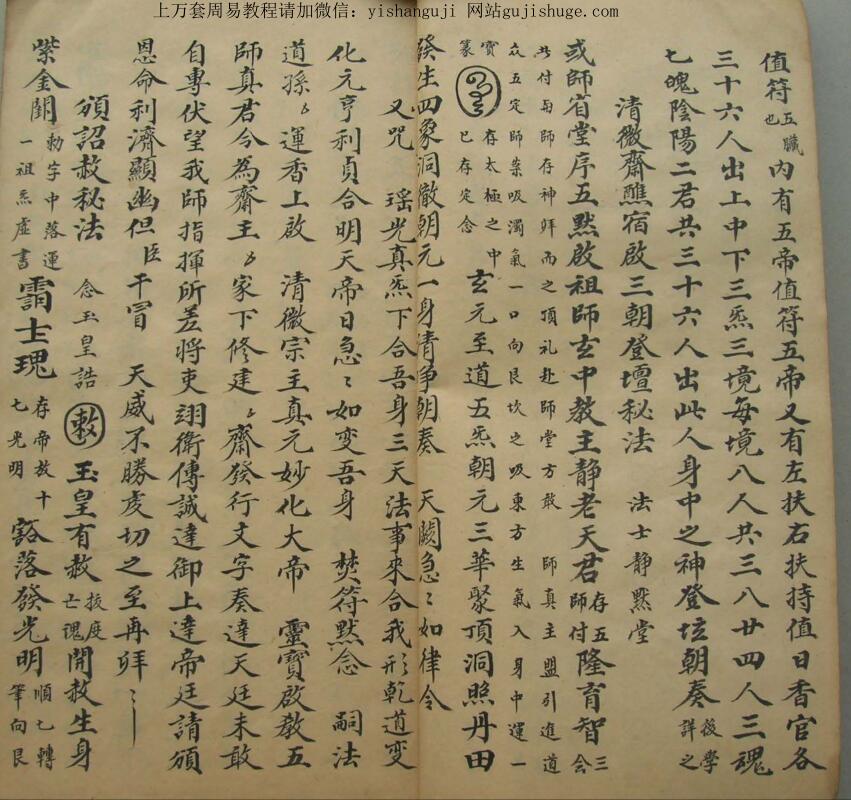 上万套周易教程请加微信：yishanguji 网站gujishuge.com
值符五臟也內有五帝值符五帝又有左扶右扶持值日香官各
三十六人出上中下三炁三境每境八人共三八廿四人三魂
七魄陰陽二君共三十六人出此人身中之神登坛朝奏後學詳之
清微齋醮宿啟三朝登壇秘法　法士静默堂
或師省堂序立默啟祖師玄中教主静老天君存五師付隆育智三会
此付每師存神拜而之頂礼赴師堂方敢　師真主盟引進道
众五定師案吸濁氣一口向艮坎之吸東方生氣入身中運一
寶篆　存太極之中已存定念　玄元至道五炁朝元三華聚頂洞照丹田
發生四象洞徹朝元一身清爭朝奏　天闕急〻如律令
又咒　瑶光真炁下合吾身三天法事來合我形乾道变
化元亨利貞合明天帝日急〻如变吾身　焚符默念　嗣法
道孫〻運香上啟　清微宗主真元妙化大帝　靈寶啟教五
師真君今為齋主〻家下修建〻齋發行文字奏達天廷未敢
自專伏望我師指揮所差將吏翊衛傳誠達御上達帝廷請頒
恩命利濟顯幽但臣干冒　天威不勝虔切之至再拜〻
頒詔赦秘法　念玉皇誥　敕　玉皇有赦拔度亡魂開赦生身
紫金闕勅字中落運一祖炁虛書　霐士瑰　存帝放十七光明　豁落發光明順七轉筆向艮